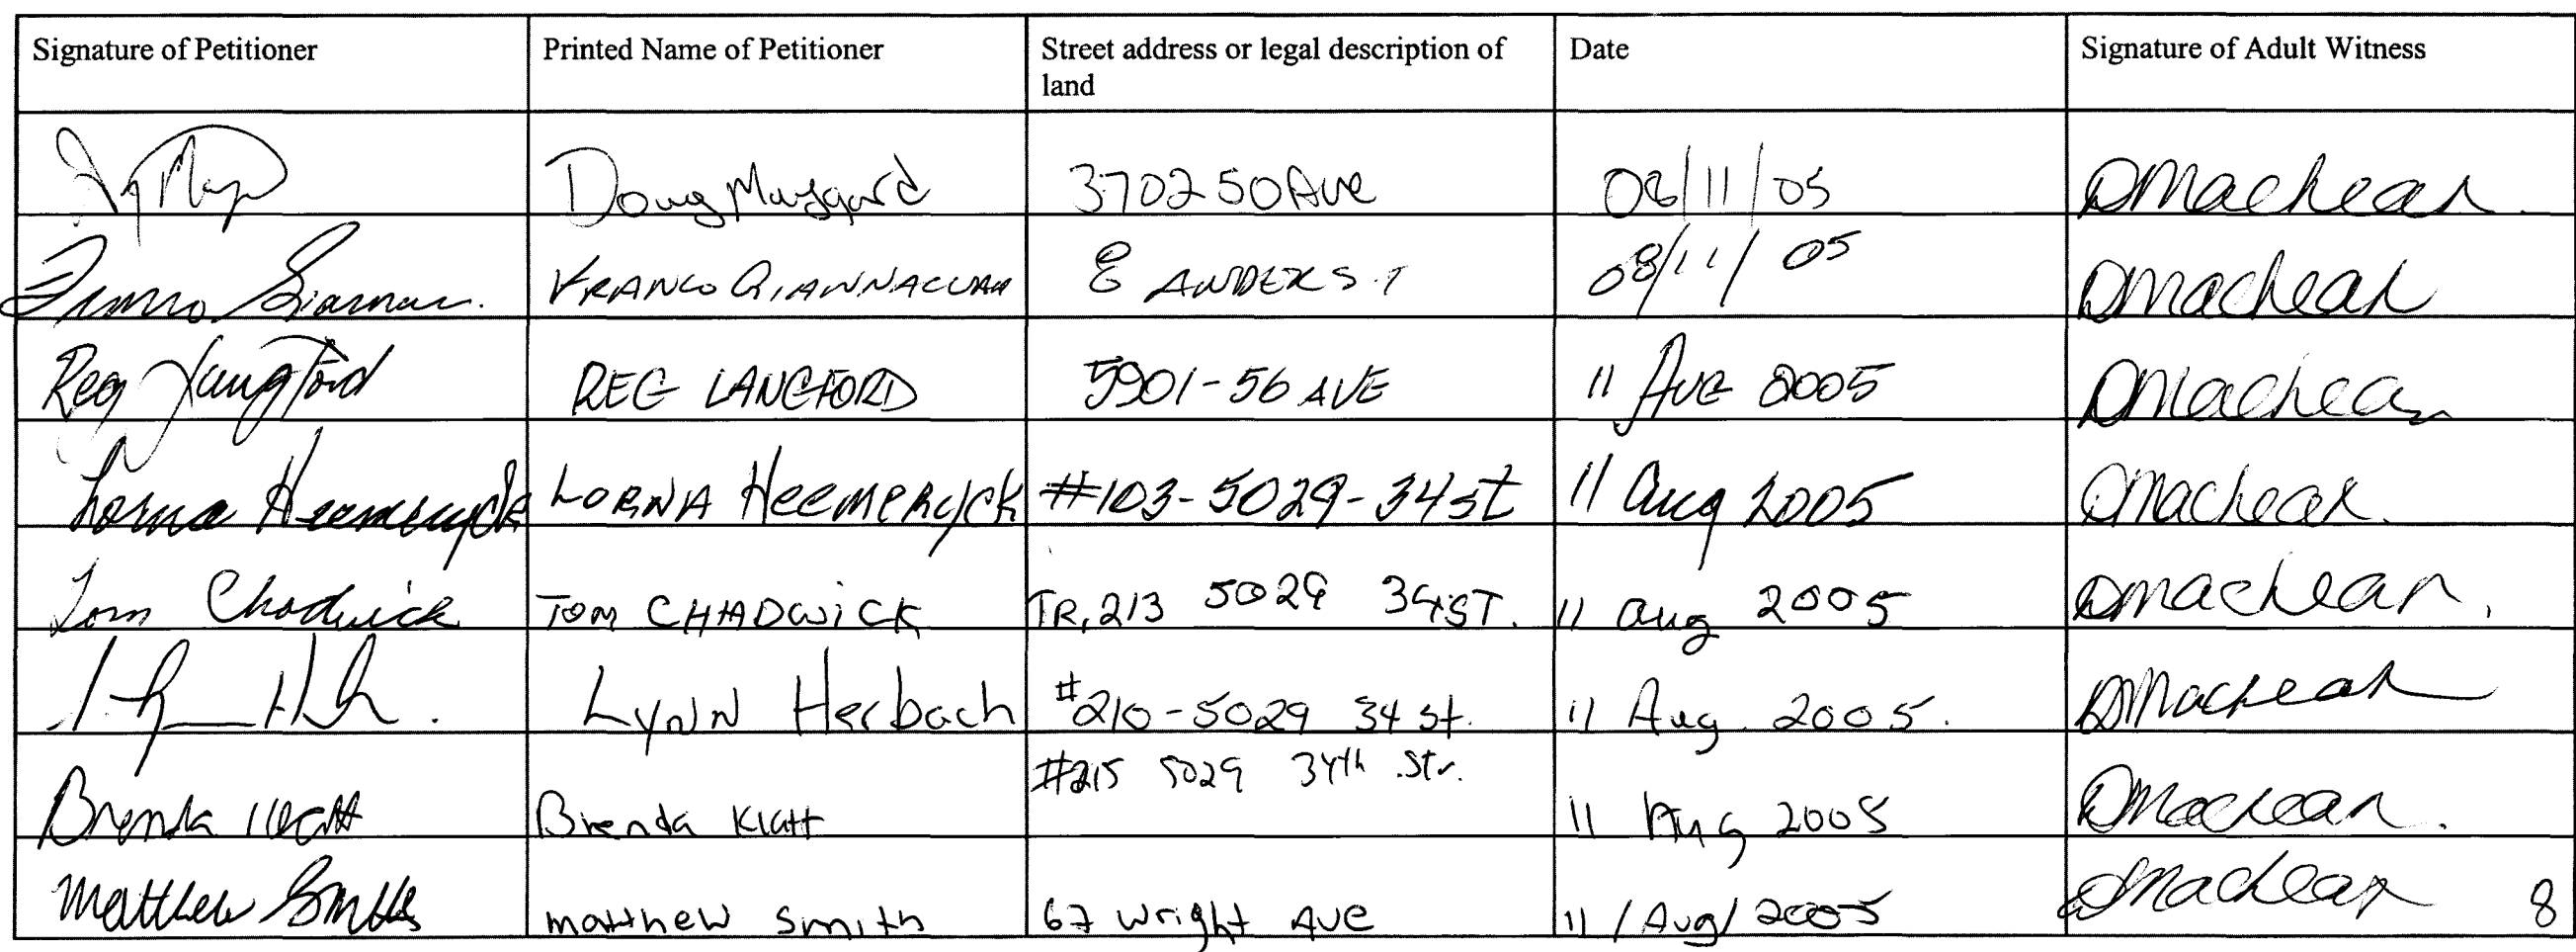 Signature of Petitioner Printed Name of Petitioner Street address or legal description of land Date Signature of Adult Witness
Doug Maygard 3702 50 Ave 08/11/05 DMachean.
FRANCO 8 ANDERS ST 08/11/05 DMachean
Reg Langford REG LANGFORD 5901-56 AVE 11 AUG 2005 DMachean
Lorna Heemeryck LORNA HEEMERyCK #103-5029-34st 11 aug 2005 DMachean.
Tom Chadwick TOM CHADWiCK TR, 213 5029 34 ST. 11 aug 2005 DMachean.
LyNN Herbach #210-5029 34 st. 11 Aug. 2005. DMachean
Brenda Klatt Brenda Klatt #215 5029 34th Str. 11 Aug 2005 DMachean.
Matthew Smith matthew smith 67 wright Ave 11/Aug/2005 DMachean 8